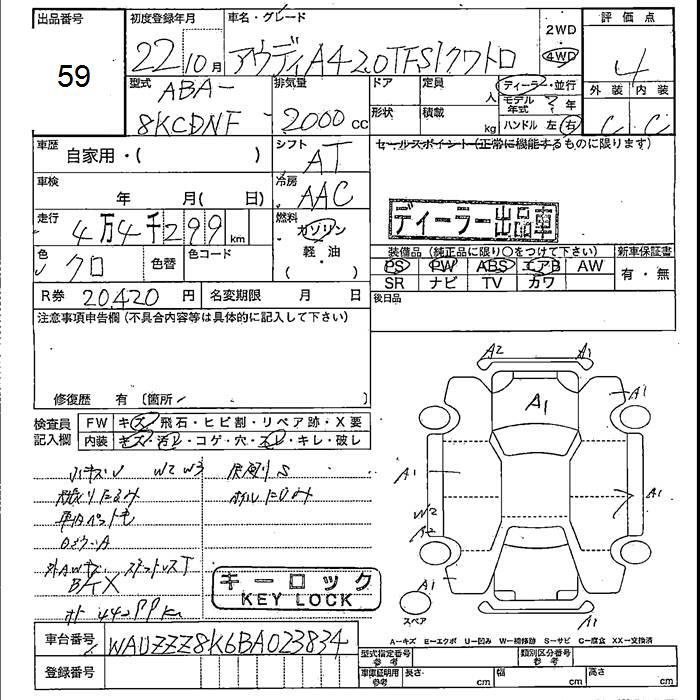 出品番号
59
初度登録年月
22 10月
車名・グレード
アウディA4 2.0TFSIクワトロ
2WD
4WD
評価点
4
外装 内装
C C
型式
ABA-
8KCDNF
排気量
2000 cc
ドア
定員
人
形状
積載
kg
ディーラー・並行
モデル年式 ? 年
ハンドル 左 右
車歴
自家用・( )
シフト
AT
セールスポイント(正常に機能するものに限ります)
車検
年 月( 日)
冷房
AAC
ディーラー出品車
走行
4万4千299 km
燃料
ガソリン
軽・油
( )
色
クロ
色替
色コード
装備品(純正品に限り〇をつけて下さい)
新車保証書
PS PW ABS エアB AW
SR ナビ TV カワ
有・無
R券 20420 円
名変期限 月 日
後日品
注意事項申告欄(不具合内容等は具体的に記入して下さい)
修復歴 有 〔箇所 〕
検査員
記入欄
FW キズ・飛石・ヒビ割・リペア跡・X要
内装 キズ・汚レ・コゲ・穴・スレ・キレ・破レ
小キズ W2 W3
A2 A1
A1
A1
A1
A1
W2
A2
A1
A1
スペア
キーロック
KEY LOCK
A-キズ E-エクボ U-凹み W-補修跡 S-サビ C-腐食 XX-交換済
車台番号 WAUZZZ8K6BA023834
登録番号
型式指定番号
参考
類別区分番号
参考
車庫証明用
参考
長さ cm
幅 cm
高さ cm